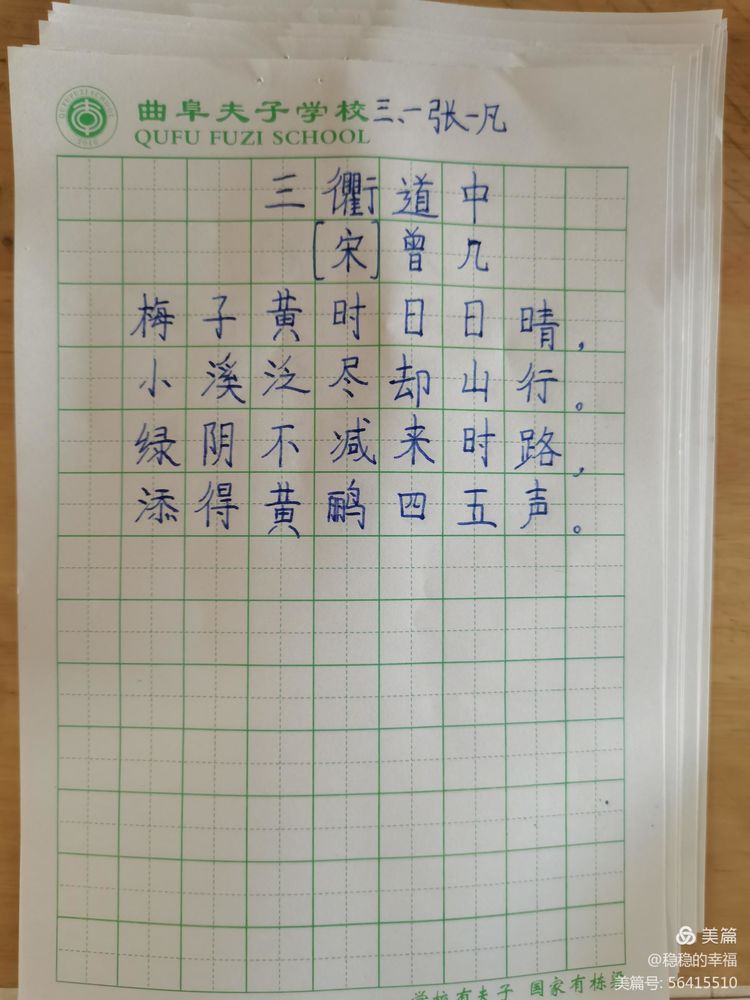 曲阜夫子学校三、一张一凡
QUFU FUZI SCHOOL
三衢道中
[宋]曾几
梅子黄时日日晴，
小溪泛尽却山行。
绿阴不减来时路，
添得黄鹂四五声。
学校有夫子 国家有栋梁
美篇
@稳稳的幸福
美篇号: 56415510